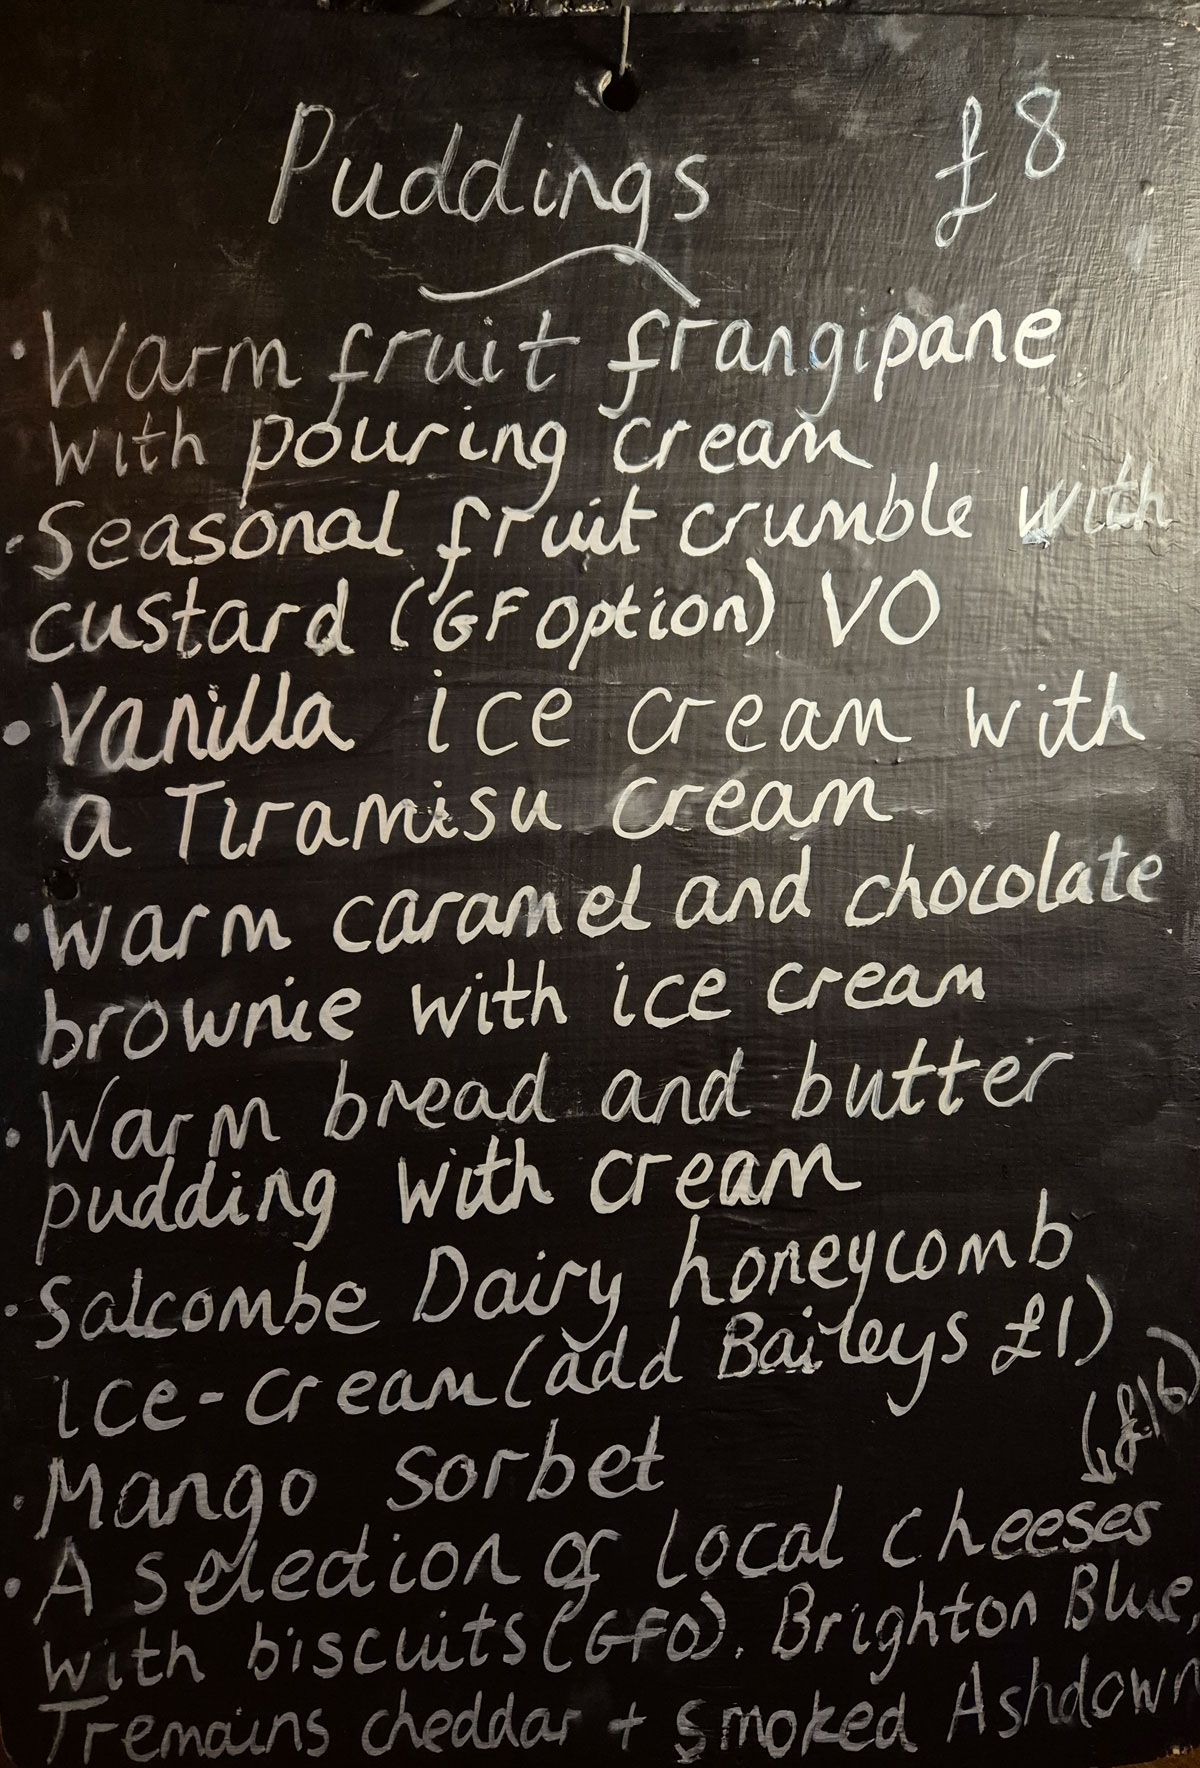 Puddings £8
• Warm fruit frangipane
with pouring cream
• Seasonal fruit crumble with
custard (GF option) VO
• Vanilla ice cream with
a Tiramisu cream
• Warm caramel and chocolate
brownie with ice cream
• Warm bread and butter
pudding with cream
• Salcombe Dairy honeycomb
ice-cream (add Baileys £1)
• Mango sorbet
(£16)
• A selection of local cheeses
with biscuits (GFO). Brighton Blue,
Tremains cheddar + smoked Ashdown